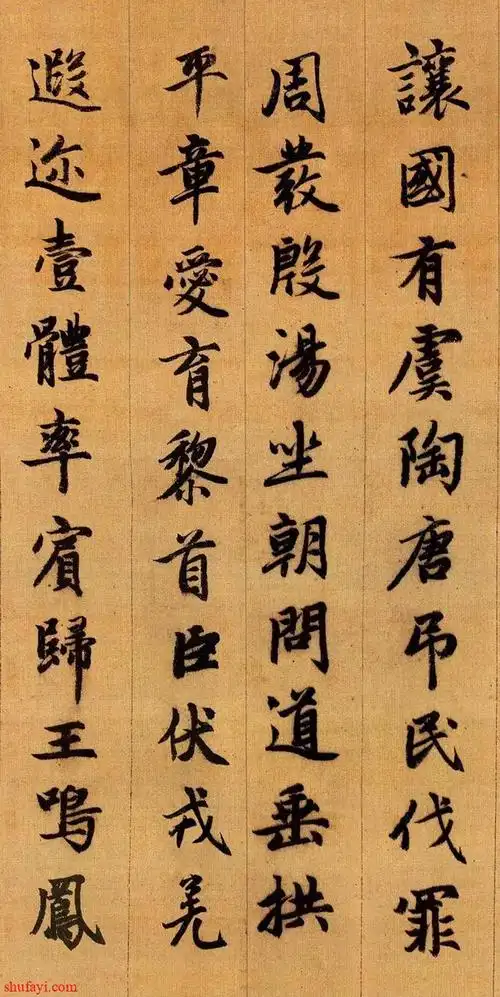 讓國有虞陶唐弔民伐罪
周發殷湯坐朝問道垂拱
平章愛育黎首臣伏戎羌
遐迩壹體率賓歸王鳴鳳
shufayi.com